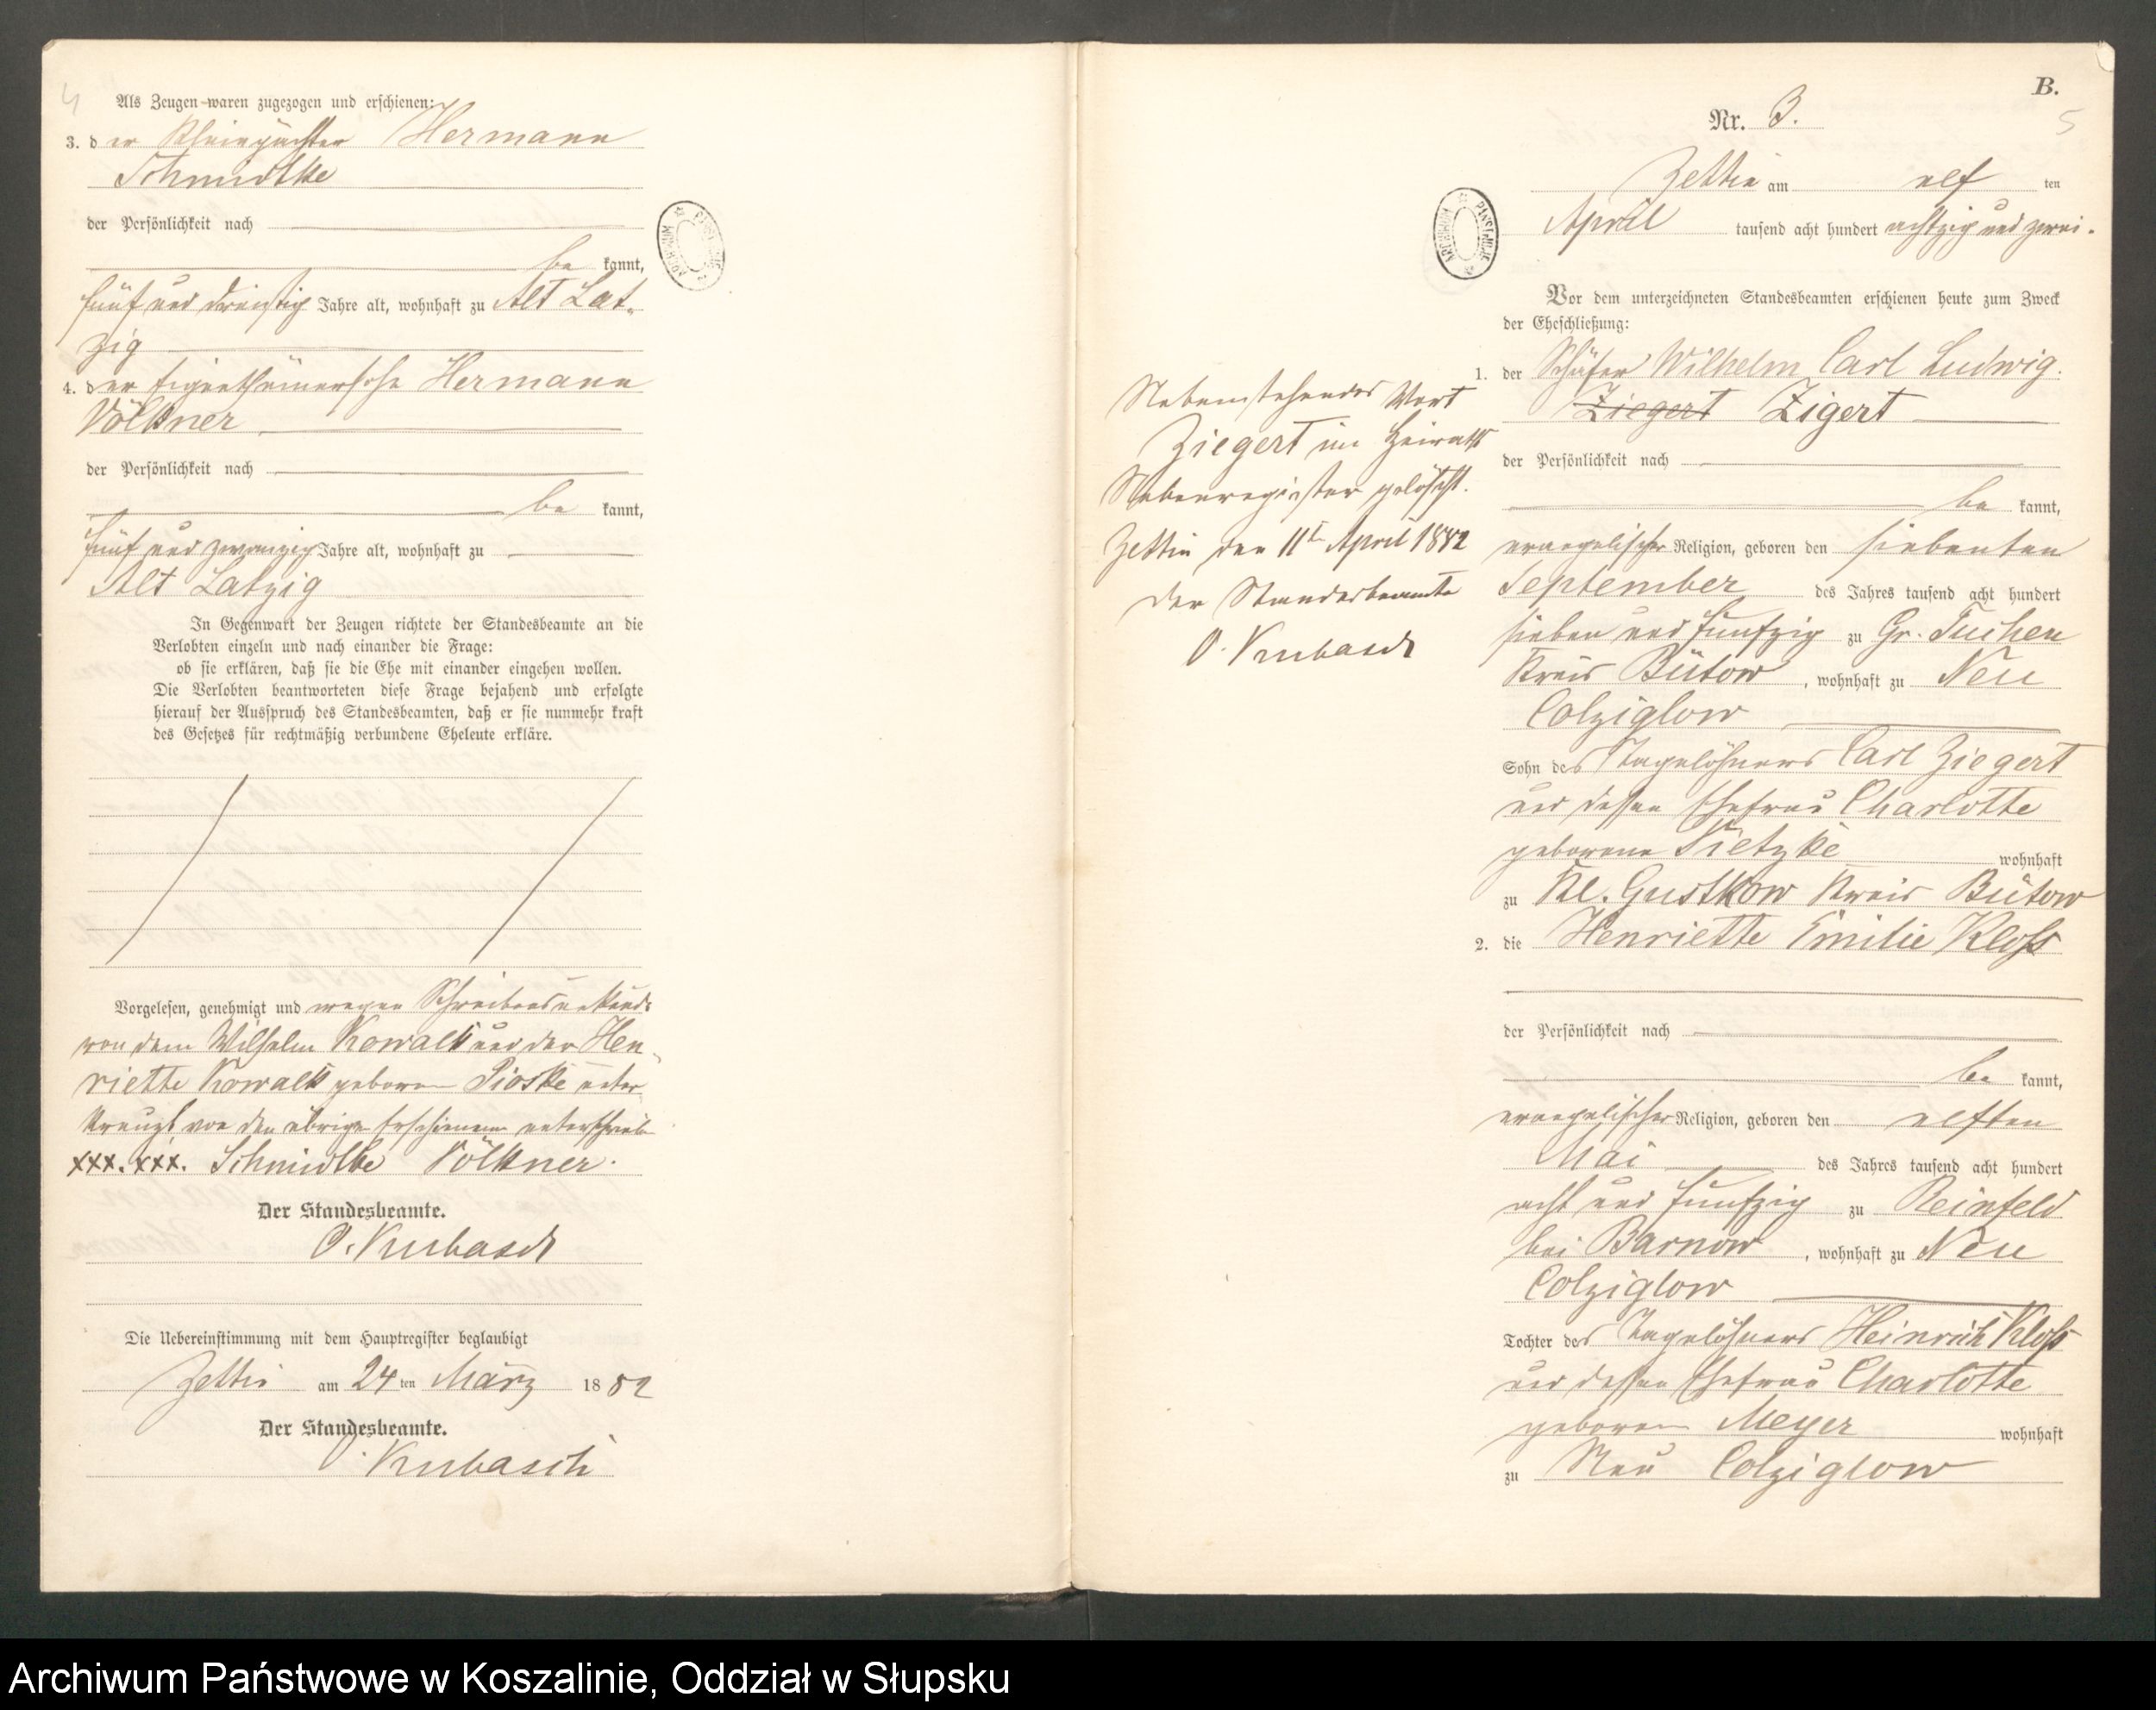 4
Als Zeugen waren zugezogen und erschienen:
3. der Kleinpächter Hermann
Schmidtke
der Persönlichkeit nach
be kannt,
fünf und dreißig Jahre alt, wohnhaft zu Alt Lat-
zig
4. der Eigenthümersohn Hermann
Völkner
der Persönlichkeit nach
be kannt,
fünf und zwanzig Jahre alt, wohnhaft zu
Alt Latzig
In Gegenwart der Zeugen richtete der Standesbeamte an die
Verlobten einzeln und nach einander die Frage:
ob sie erklären, daß sie die Ehe mit einander eingehen wollen.
Die Verlobten beantworteten diese Frage bejahend und erfolgte
hierauf der Ausspruch des Standesbeamten, daß er sie nunmehr kraft
des Gesetzes für rechtmäßig verbundene Eheleute erkläre.
Vorgelesen, genehmigt und wegen Schreibensunkunde
von dem Wilhelm Kowalk und der Hen-
riette Kowalk geborene Pioske unter
kreuzt von den übrigen Erschienenen unterschrieben
xxx. xxx. Schmidtke Völkner.
Der Standesbeamte.
O. Kubasch
Die Uebereinstimmung mit dem Hauptregister beglaubigt
Zettin am 24 ten März 1882
Der Standesbeamte.
O. Kubasch
ARCHIWUM PAŃSTWOWE
B.
5
Nr. 3.
Zettin am elf ten
April tausend acht hundert achtzig und zwei.
Vor dem unterzeichneten Standesbeamten erschienen heute zum Zweck
der Eheschließung:
1. der Schäfer Wilhelm Carl Ludwig.
Ziegert Zigert
der Persönlichkeit nach
be kannt,
evangelischer Religion, geboren den siebenten
September des Jahres tausend acht hundert
sieben und fünfzig zu Gr. Tuchen
Kreis Bütow, wohnhaft zu Neu
Colziglow
Sohn des Tagelöhners Carl Ziegert
und dessen Ehefrau Charlotte
geborene Pietzke wohnhaft
zu Kl. Gustkow Kreis Bütow
2. die Henriette Emilie Kloß
der Persönlichkeit nach
be kannt,
evangelischer Religion, geboren den elften
Mai des Jahres tausend acht hundert
acht und fünfzig zu Reinfeld
bei Barnow, wohnhaft zu Neu
Colziglow
Tochter des Tagelöhners Heinrich Kloß
und dessen Ehefrau Charlotte
geborene Meyer wohnhaft
zu Neu Colziglow
Nebenstehendes Wort
Ziegert im Heiraths
Nebenregister gelöscht.
Zettin den 11t April 1882
Der Standesbeamte
O. Kubasch
ARCHIWUM PAŃSTWOWE
Archiwum Państwowe w Koszalinie, Oddział w Słupsku